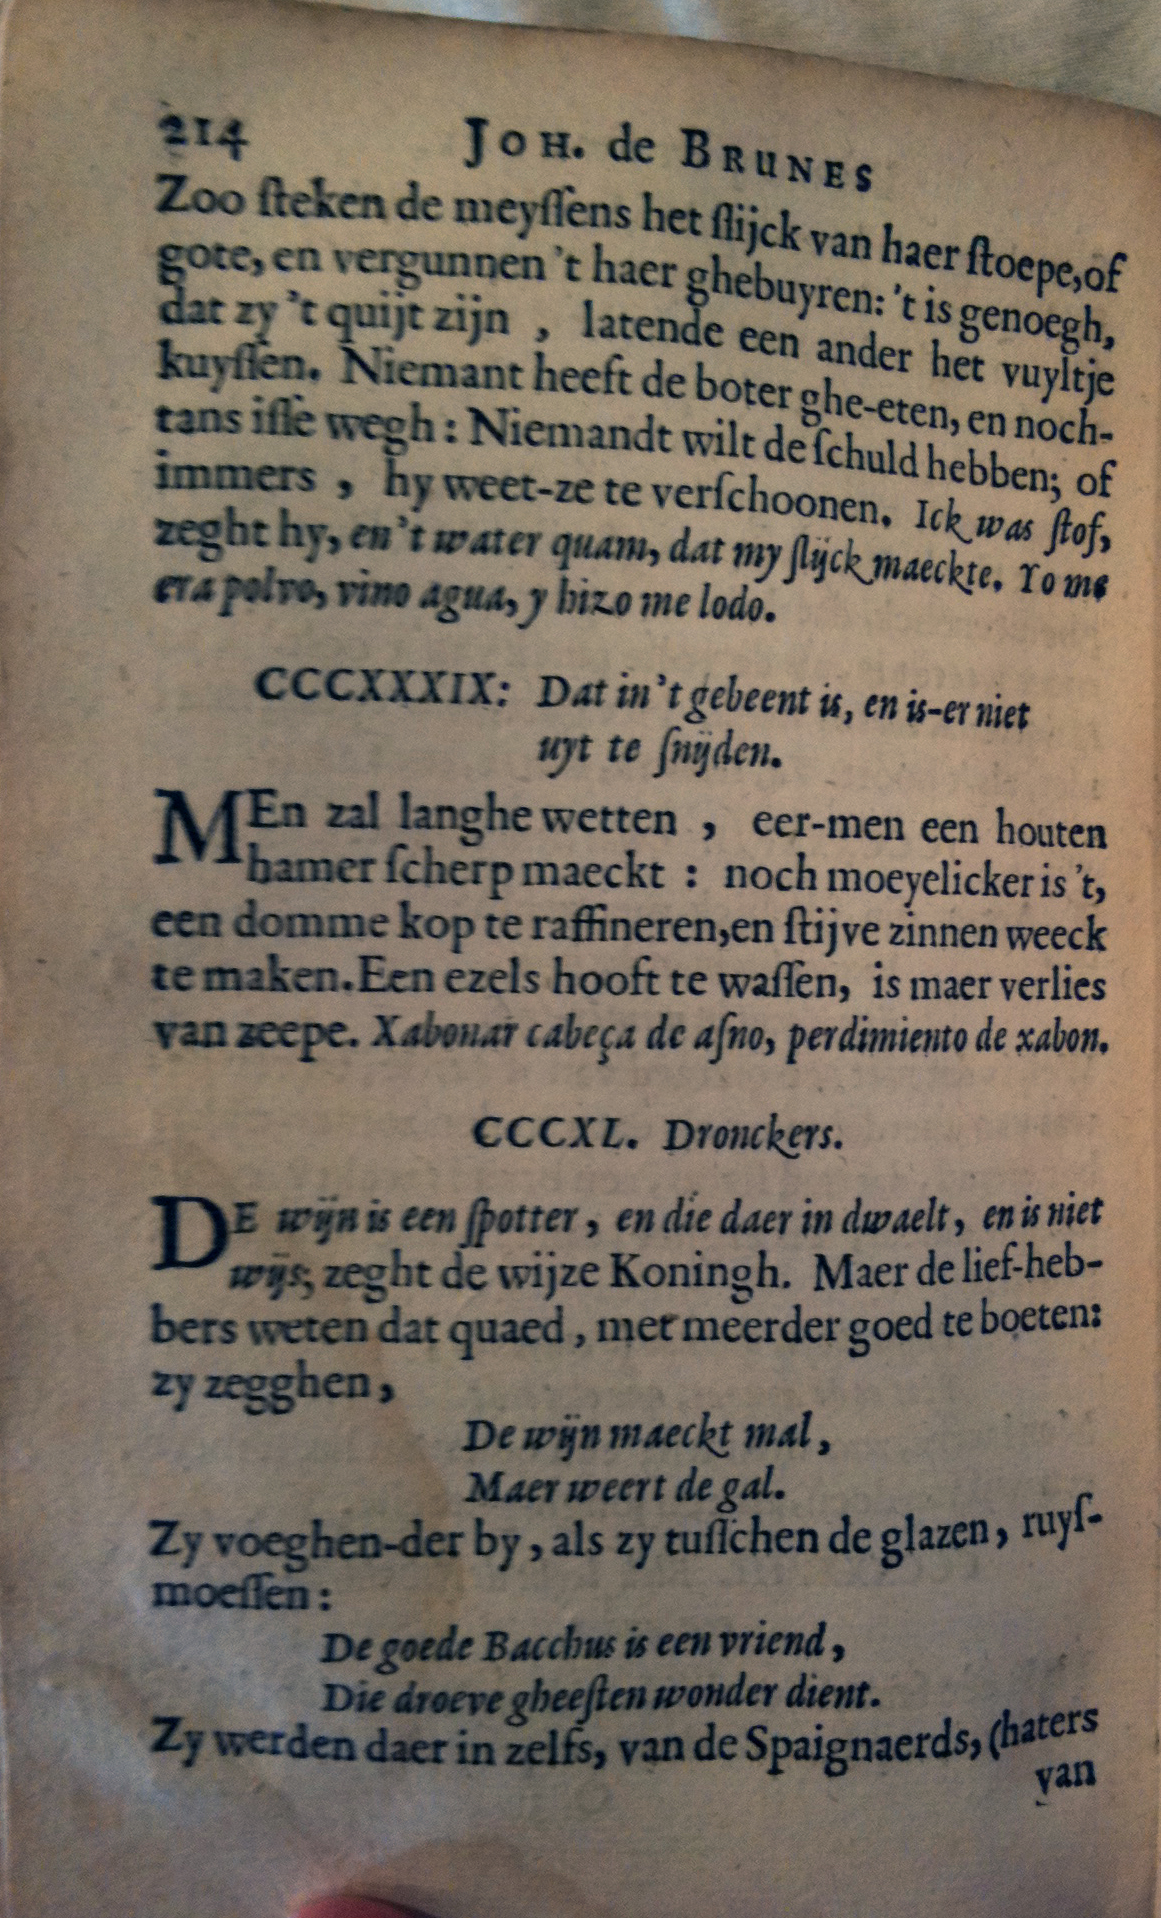 214 JOH. de BRUNES
Zoo ſteken de meyſſens het ſlijck van haer ſtoepe, of
gote, en vergunnen 't haer ghebuyren: 't is genoegh,
dat zy 't quijt zijn , latende een ander het vuyltje
kuyſſen. Niemant heeft de boter ghe-eten, en noch-
tans iſſe wegh : Niemandt wilt de ſchuld hebben; of
immers , hy weet-ze te verſchoonen. Ick was ſtof,
zeght hy, en 't water quam, dat my ſlijck maeckte. Yo me
era polvo, vino agua, y hizo me lodo.
CCCXXXIX: Dat in 't gebeent is, en is-er niet
uyt te ſnijden.
MEn zal langhe wetten , eer-men een houten
hamer ſcherp maeckt : noch moeyelicker is 't,
een domme kop te raffineren, en ſtijve zinnen weeck
te maken. Een ezels hooft te waſſen, is maer verlies
van zeepe. Xabonar cabeça de aſno, perdimiento de xabon.
CCCXL. Dronckers.
DE wijn is een ſpotter, en die daer in dwaelt, en is niet
wijs, zeght de wijze Koningh. Maer de lief-heb-
bers weten dat quaed, met meerder goed te boeten:
zy zegghen,
De wijn maeckt mal,
Maer weert de gal.
Zy voeghen-der by, als zy tuſſchen de glazen, ruyſ-
moeſſen :
De goede Bacchus is een vriend,
Die droeve gheeſten wonder dient.
Zy werden daer in zelfs, van de Spaignaerds, (haters
van